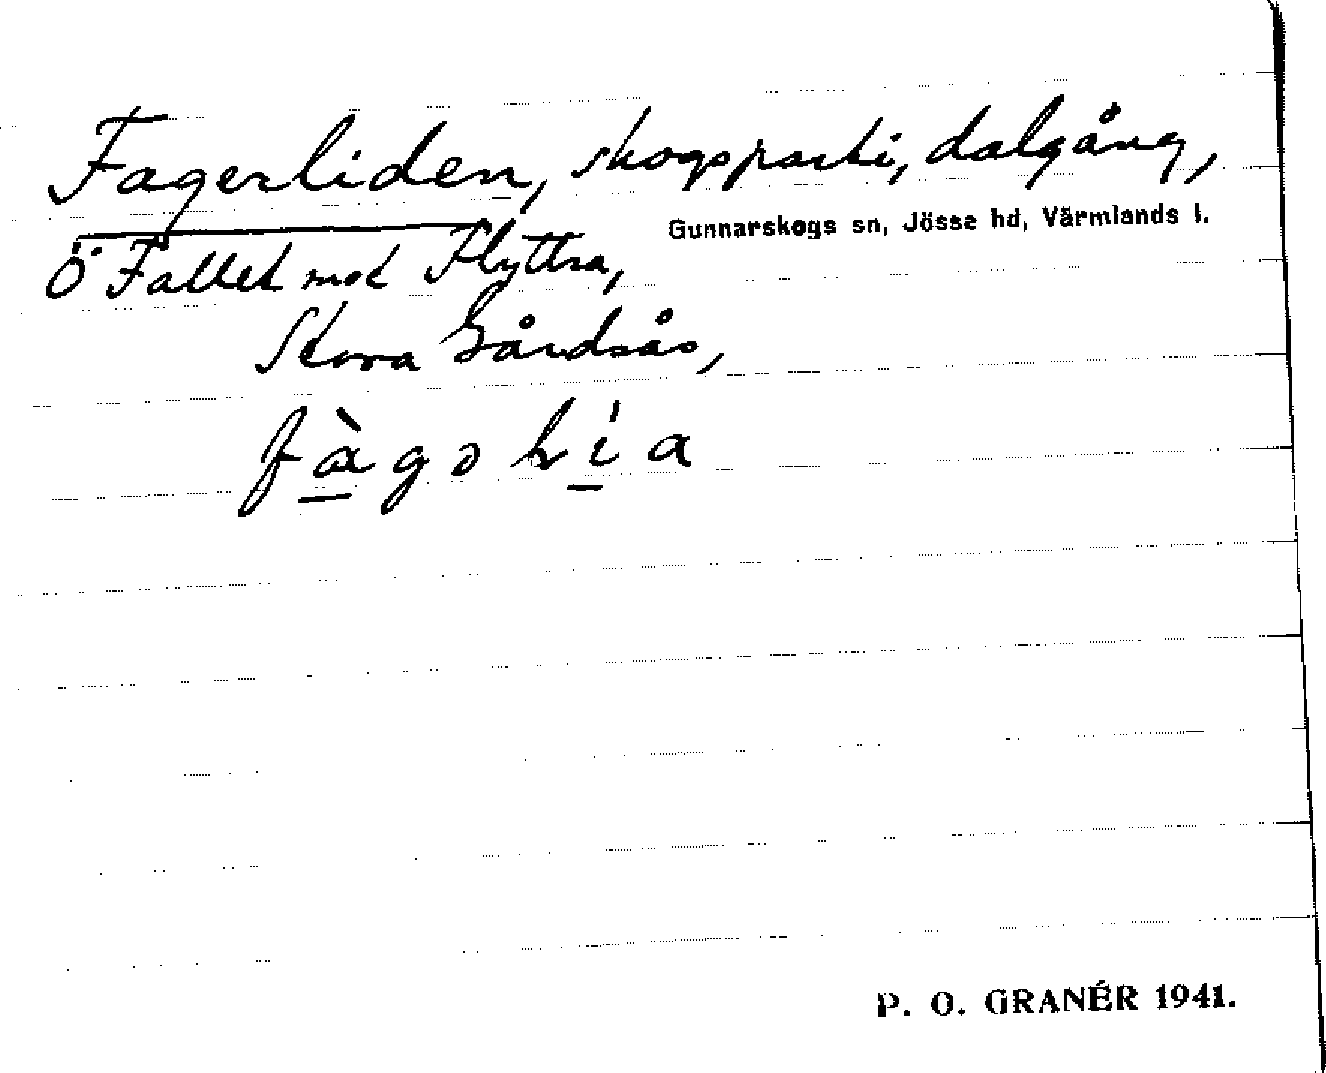 Fagerliden, skogsparti, dalgång,
Gunnarskogs sn, Jösse hd, Värmlands l.
Ö Fallet mot Flyttra,
Stora Gårdsås,
fàgəlía
P. O. GRANÉR 1941.